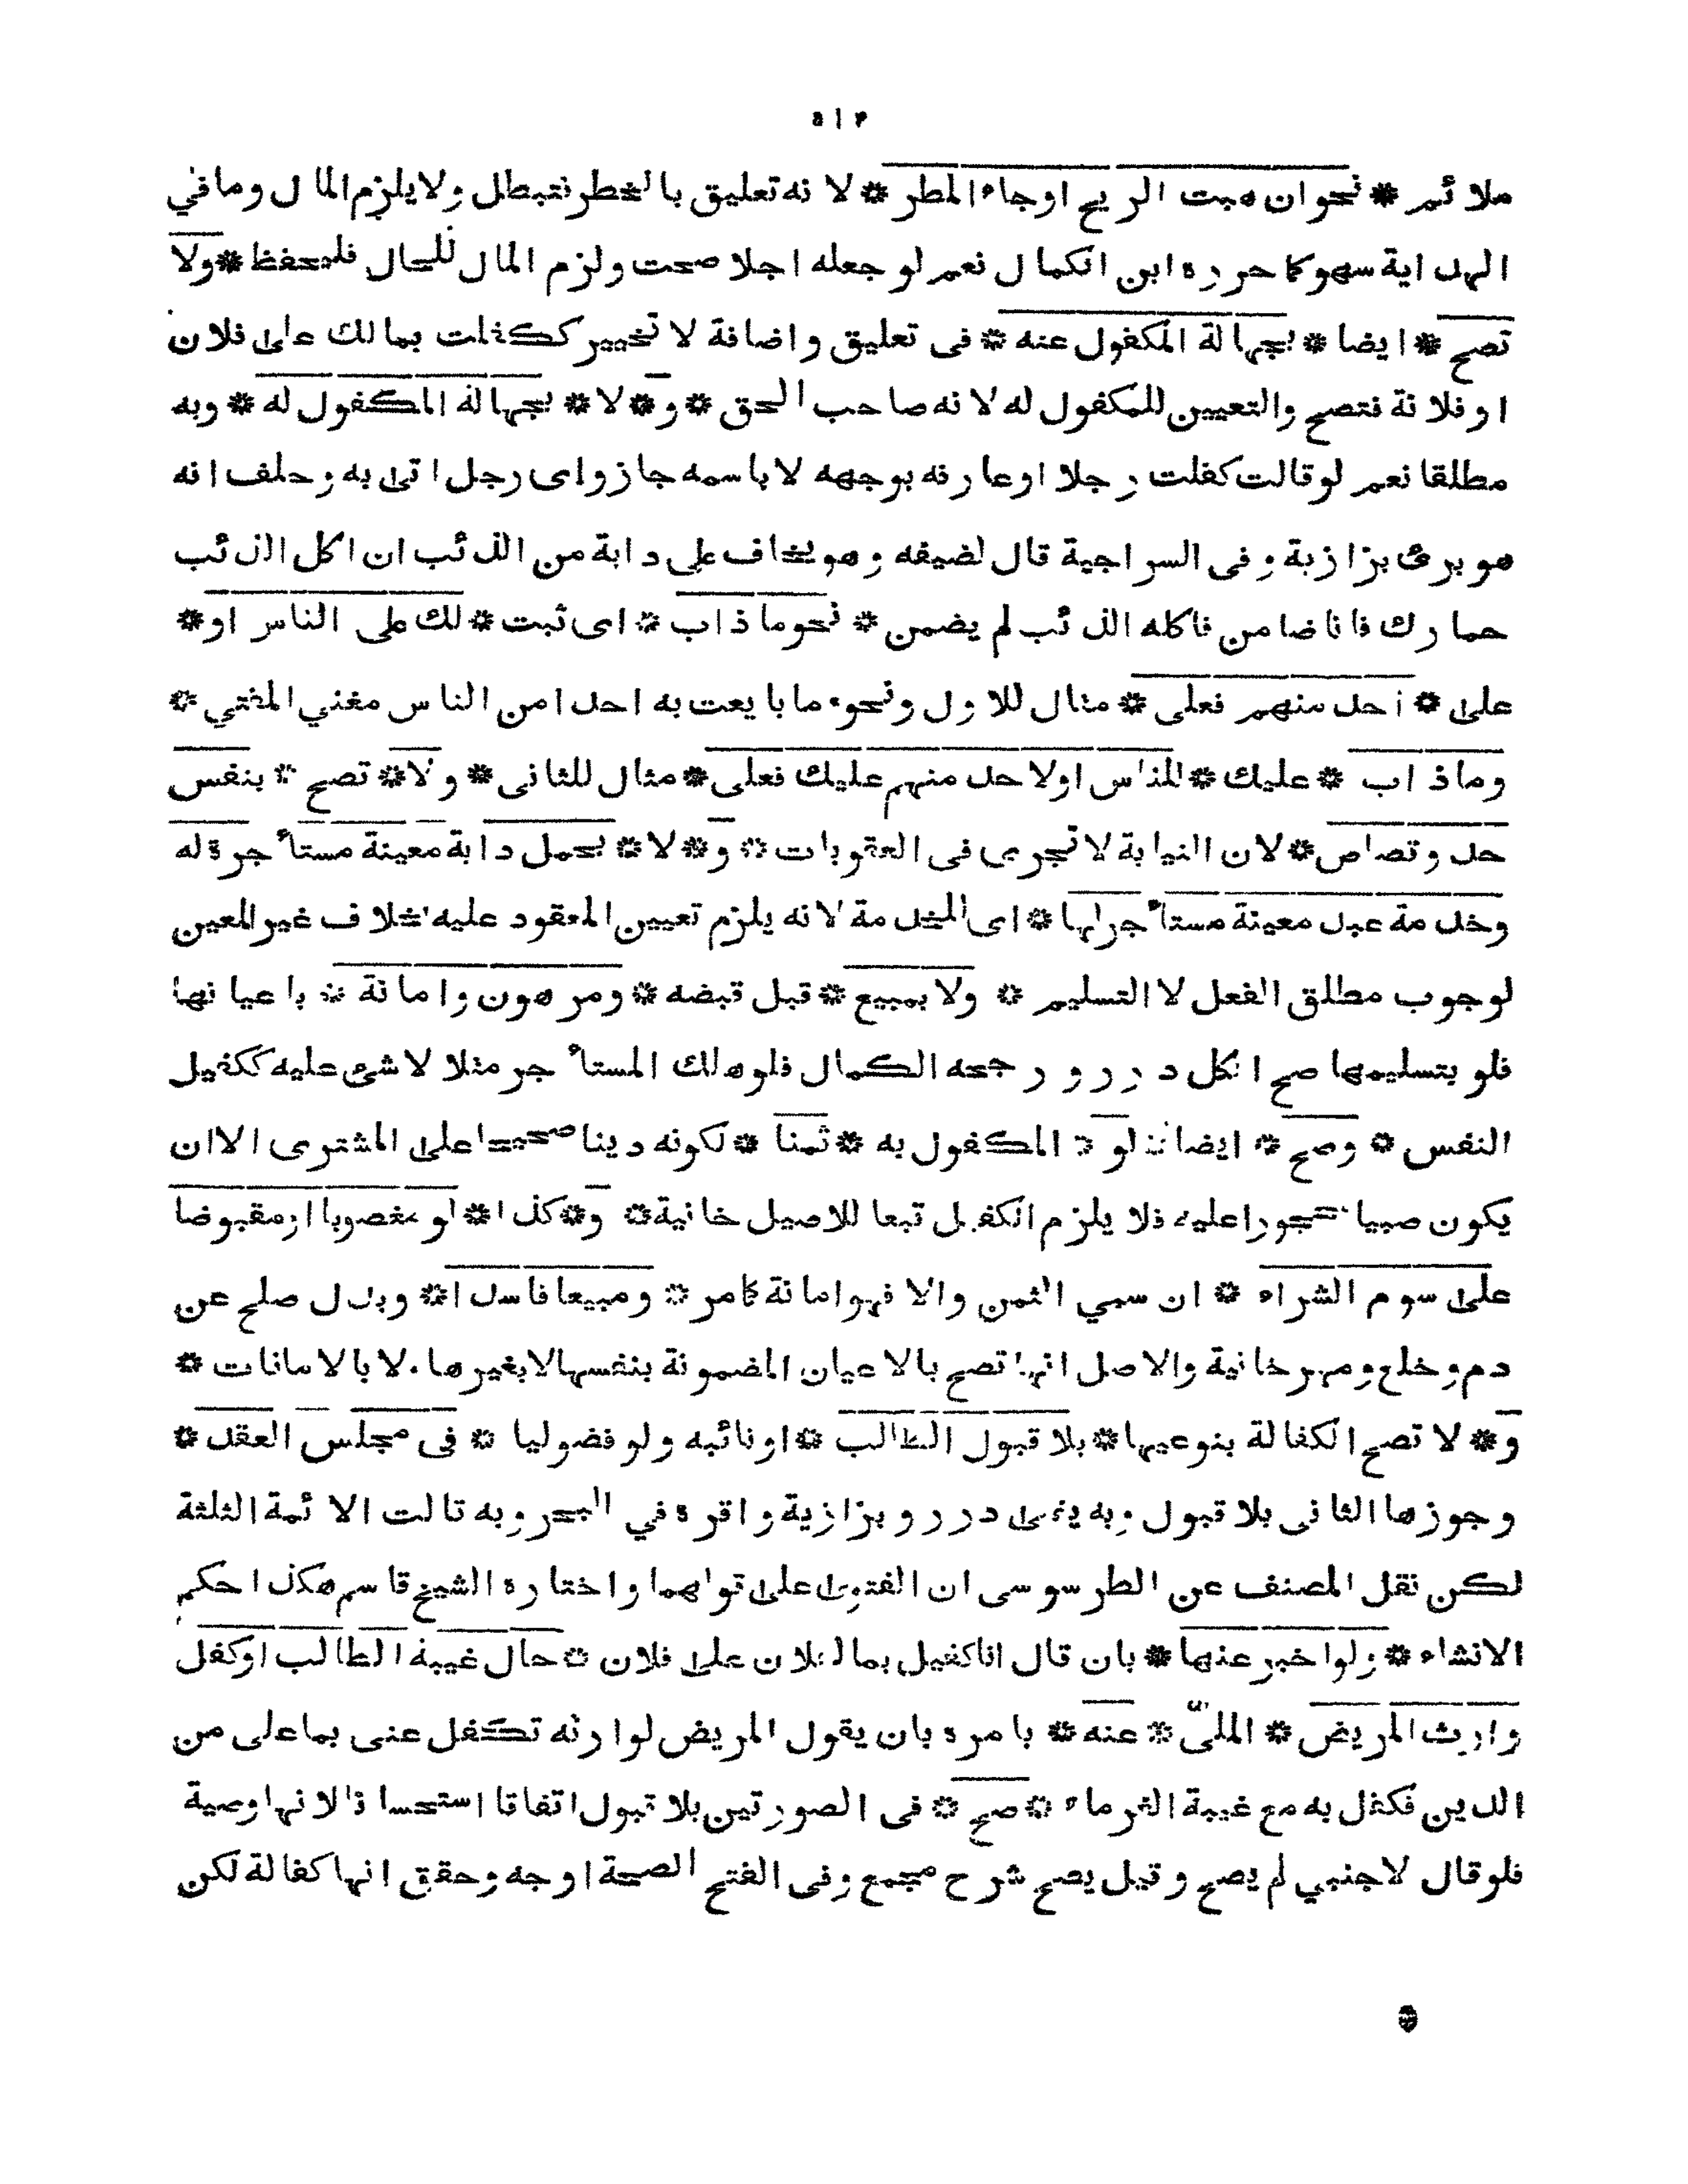 ٥١٢
ملائم * نحو ان هبت الريح اوجاء المطر * لانه تعليق بالخطر فتبطل ولا يلزم المال وما في
الهداية سهو كما حرره ابن الكمال نعم لو جعله اجلا صحت ولزم المال للحال فليحفظ * ولا
تصح * ايضا * بجهالة المكفول عنه * فى تعليق واضافة لا تخيير ككفلت بمالك على فلان
او فلانة فتصح والتعيين للمكفول له لانه صاحب الحق * و * لا * بجهالة المكفول له * وبه
مطلقا نعم لو قالت كفلت رجلا اوعارفه بوجهه لا باسمه جاز واى رجل اتى به وحلف انه
هو برئ بزازية وفى السراجية قال لضيفه وهو يخاف على دابة من الذئب ان اكل الذئب
حمارك فانا ضامن فاكله الذئب لم يضمن * نحو ما ذاب * اى ثبت * لك على الناس او *
على * احد منهم فعلى * مثال للاول ونحوه ما بايعت به احدا من الناس مغني المفتي *
وما ذاب * عليك * للناس اولاحد منهم عليك فعلى * مثال للثانى * ولا * تصح * بنفس
حد وقصاص * لان النيابة لا تجرى فى العقوبات * و * لا * بحمل دابة معينة مستأجرة له
وخدمة عبد معينة مستأجر لها * اى للخدمة لانه يلزم تعيين المعقود عليه بخلاف غير المعين
لوجوب مطلق الفعل لا التسليم * ولا بمبيع * قبل قبضه * ومرهون وامانة * باعيانها
فلو بتسليمها صح الكل درر ورجحه الكمال فلو هلك المستأجر مثلا لا شئ عليه ككفيل
النفس * وصح * ايضا * لو * المكفول به * ثمنا * لكونه دينا صحيحا على المشترى الا ان
يكون صبيا محجورا عليه فلا يلزم الكفيل تبعا للاصيل خانية * و * كذا * لو مغصوبا او مقبوضا
على سوم الشراء * ان سمي الثمن والا فهو امانة كما مر * ومبيعا فاسدا * وبدل صلح عن
دم وخلع ومهر خانية والاصل انها تصح بالاعيان المضمونة بنفسها لا بغيرها ولا بالامانات *
و * لا تصح الكفالة بنوعيها * بلا قبول الطالب * او نائبه ولو فضوليا * فى مجلس العقد *
وجوزها الثانى بلا قبول وبه يفتى درر وبزازية واقره في البحر وبه قالت الائمة الثلثة
لكن نقل المصنف عن الطرسوسى ان الفتوى على قولهما واختاره الشيخ قاسم هكذا حكم
الانشاء * ولو اخبر عنها * بان قال انا كفيل بما لفلان على فلان * حال غيبة الطالب او كفل
وارث المريض * الملىّ * عنه * بامره بان يقول المريض لوارثه تكفل عنى بما على من
الدين فكفل به مع غيبة الغرماء * صح * فى الصورتين بلا قبول اتفاقا استحسانا لانها وصية
فلو قال لاجنبي لم يصح وقيل يصح شرح مجمع وفى الفتح الصحة اوجه وحقق انها كفالة لكن